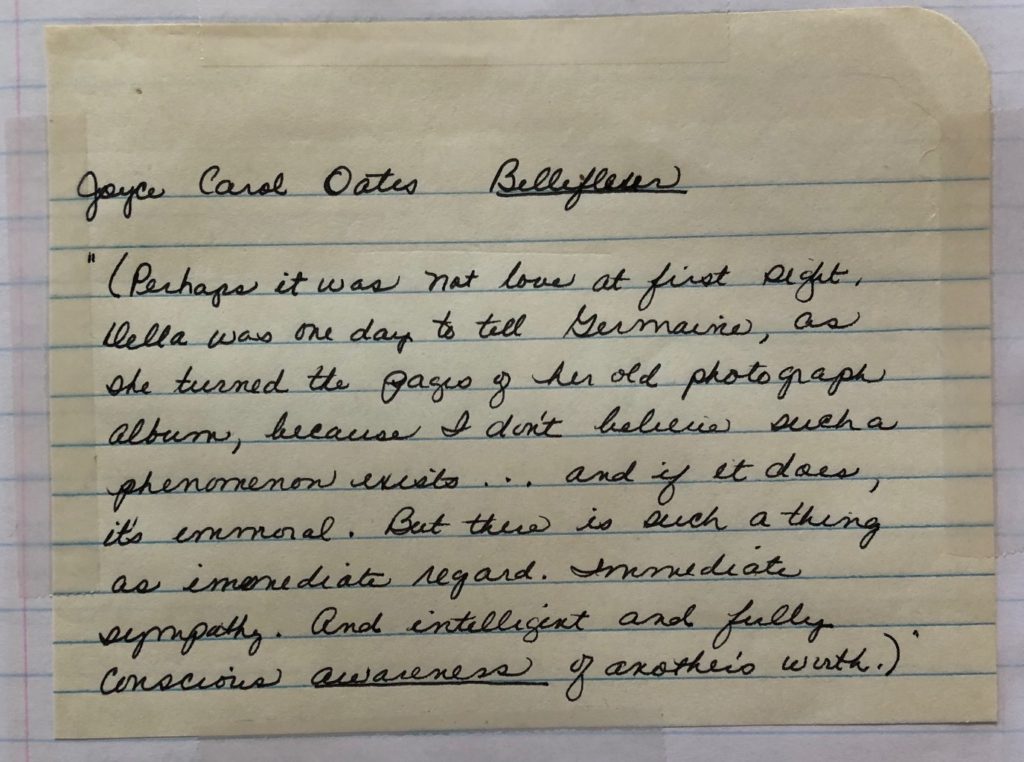 Joyce Carol Oates Bellefleur
"(Perhaps it was not love at first sight,
Della was one day to tell Germaine, as
she turned the pages of her old photograph
album, because I don't believe such a
phenomenon exists... and if it does,
it's immoral. But there is such a thing
as immediate regard. Immediate
sympathy. And intelligent and fully
conscious awareness of another's worth.)"